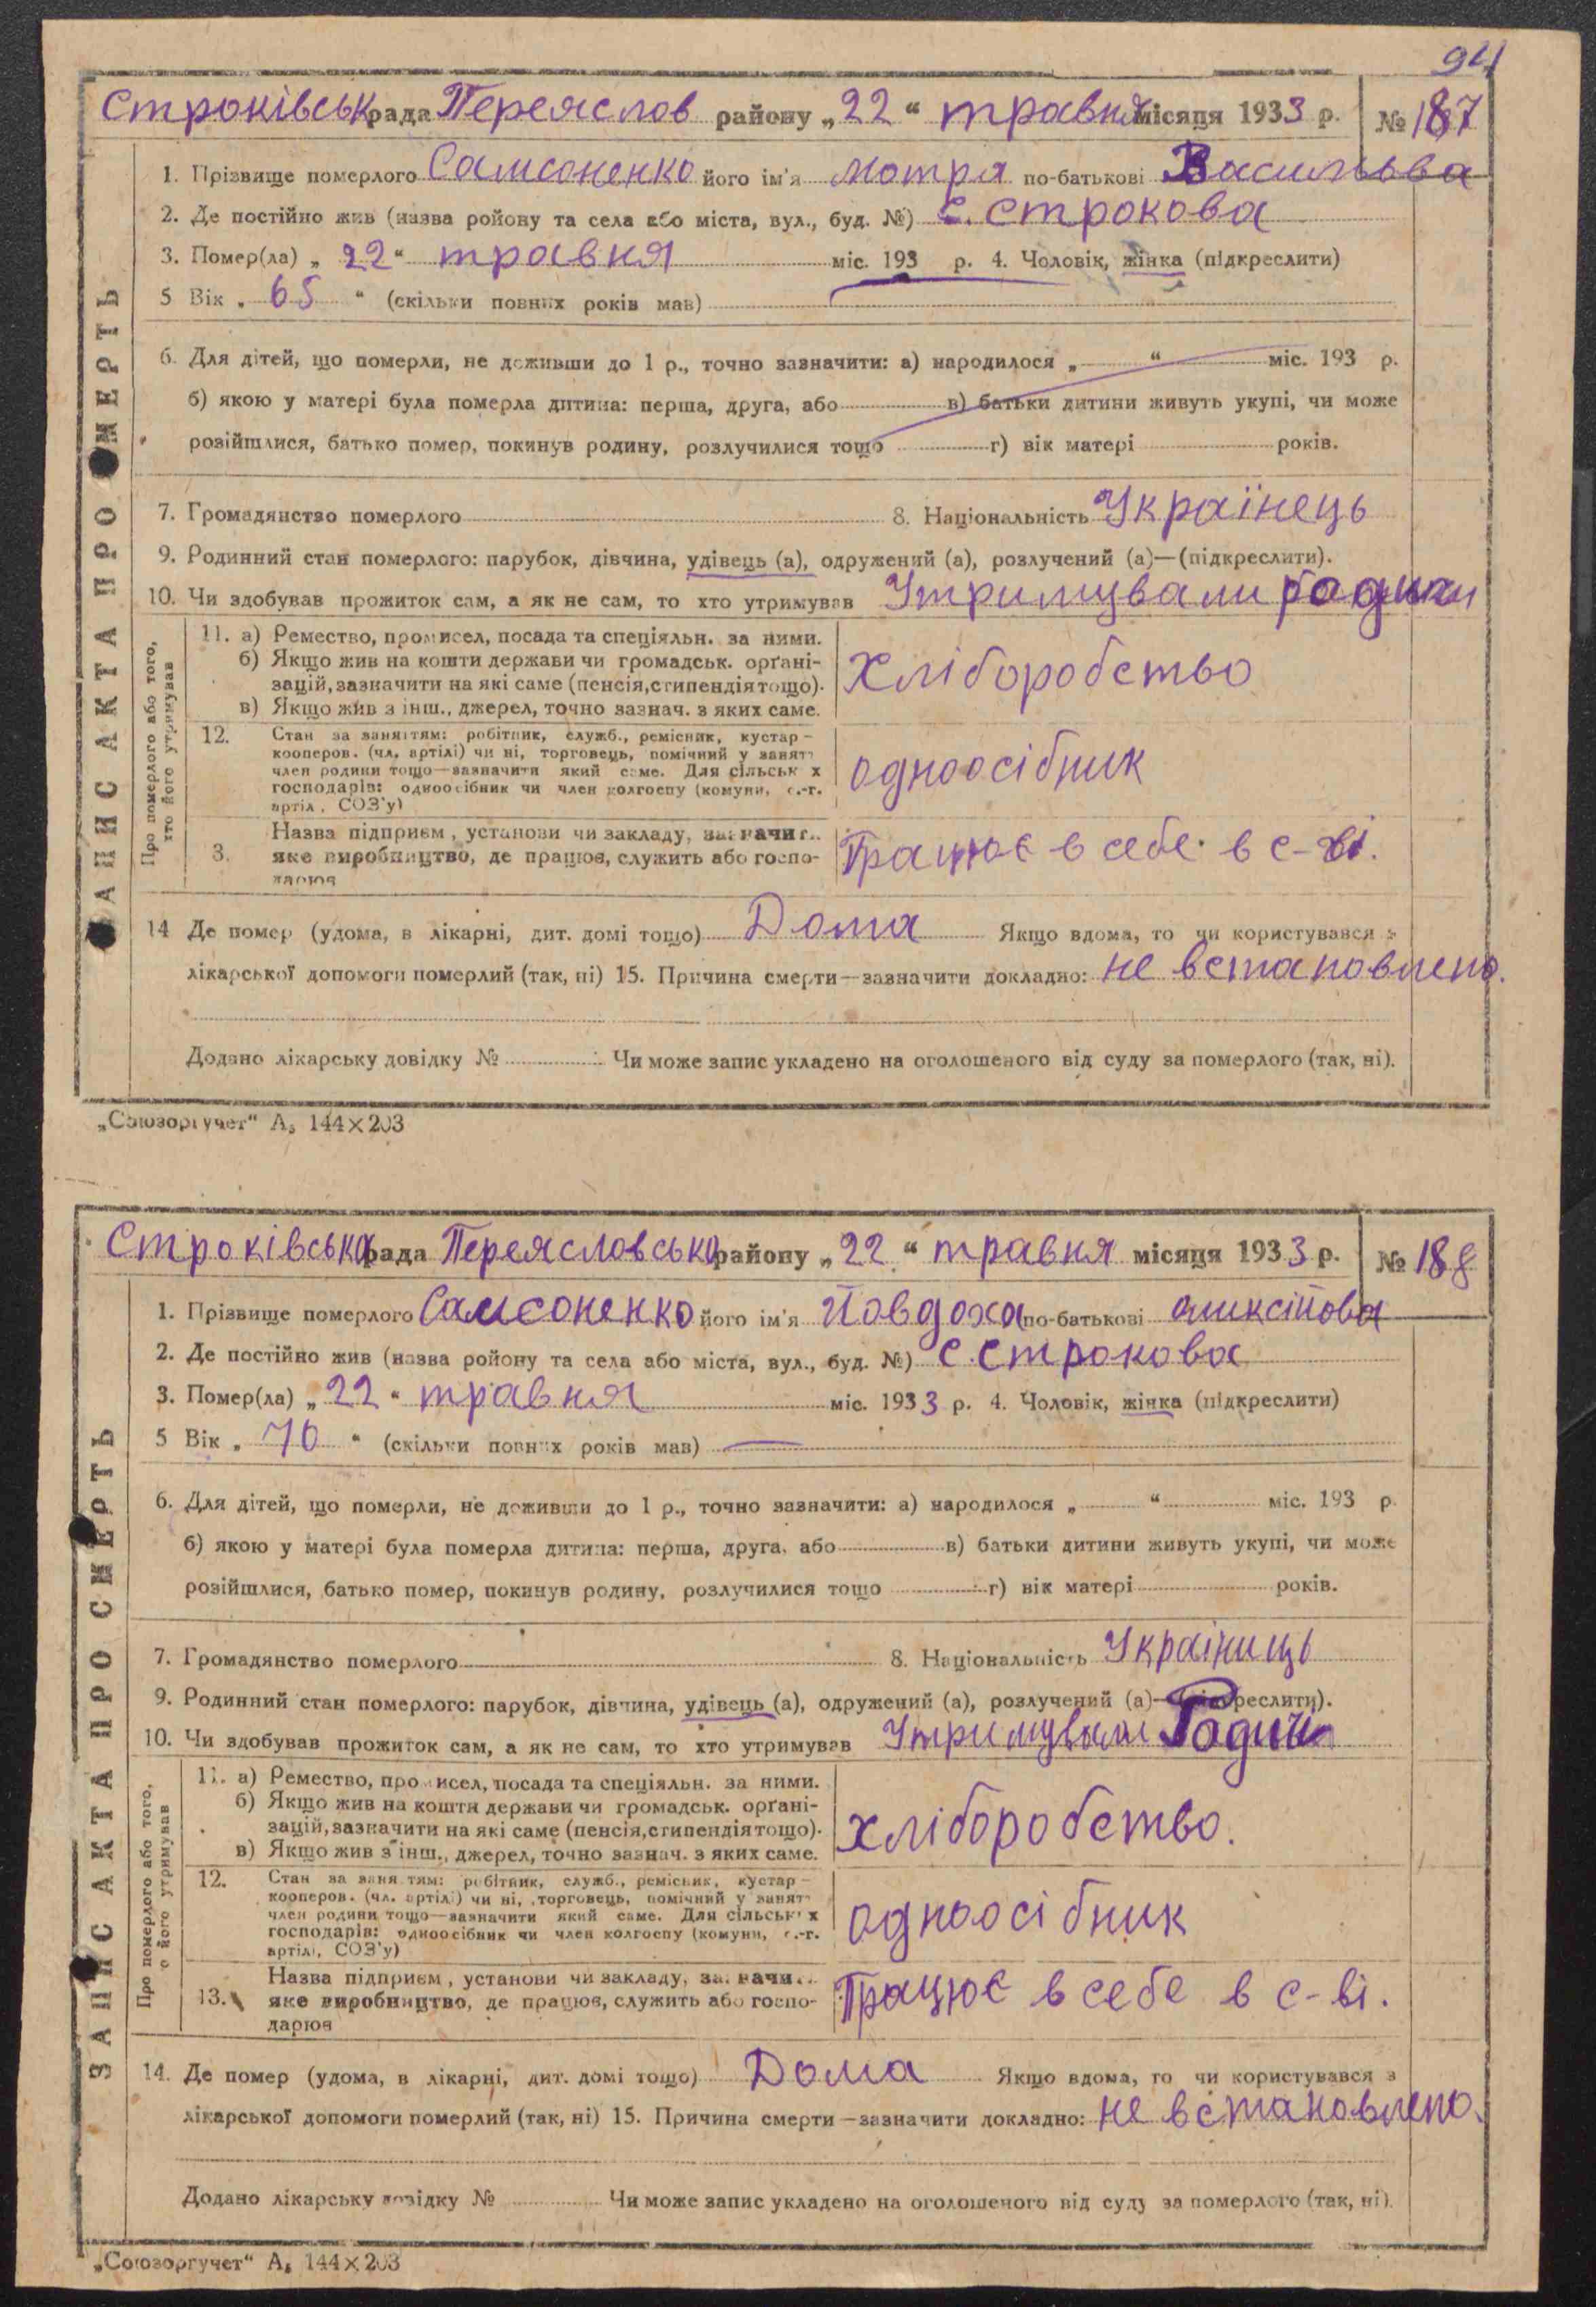 94
Строківськ рада Переяслов району „22“ травня місяця 1933 р. № 187
1. Прізвище померлого Самсоненко його ім'я Мотря по-батькові Васильва
2. Де постійно жив (назва ройону та села або міста, вул., буд. №) с. Строкова
3. Помер(ла) „22“ травня міс. 193 р. 4. Чоловік, жінка (підкреслити)
5 Вік „65“ (скільки повних років мав)
6. Для дітей, що померли, не доживши до 1 р., точно зазначити: а) народилося „ “ міс. 193 р.
б) якою у матері була померла дитина: перша, друга, або в) батьки дитини живуть укупі, чи може
розійшлися, батько помер, покинув родину, розлучилися тощо г) вік матері років.
7. Громадянство померлого 8. Національність Українець
9. Родинний стан померлого: парубок, дівчина, удівець (а), одружений (а), розлучений (а)—(підкреслити).
10. Чи здобував прожиток сам, а як не сам, то хто утримував Утримували родичи
ЗАПИС АКТА ПРО СМЕРТЬ
Про померлого або того, хто його утримував
11. а) Ремество, промисел, посада та спеціяльн. за ними.
б) Якщо жив на кошти держави чи громадськ. орґані-
зацій, зазначити на які саме (пенсія, стипендія тощо).
в) Якщо жив з інш., джерел, точно зазнач. з яких саме.
Хліборобство
12. Стан за заняттям: робітник, служб., ремісник, кустар –
кооперов. (чл. артілі) чи ні, торговець, помічний у занятт
член родини тощо—зазначити який саме. Для сільськ х
господарів: одноосібник чи член колгоспу (комуни, с.-г.
артіл, СОЗ'у)
одноосібник
3. Назва підприєм, установи чи закладу, зазначит..
яке виробництво, де працюв, служить або госпо-
дарюв
Працює в себе в с-ві.
14 Де помер (удома, в лікарні, дит. домі тощо) Дома Якщо вдома, то чи користувався з
лікарської допомоги померлий (так, ні) 15. Причина смерти—зазначити докладно: не встановлено.
Додано лікарську довідку № Чи може запис укладено на оголошеного від суду за померлого (так, ні).
„Союзоргучет“ А₅ 144×203
Строківська рада Переясловська району „22“ травня місяця 1933 р. № 188
1. Прізвище померлого Самсоненко його ім'я Йовдоха по-батькові Оликсійова
2. Де постійно жив (назва ройону та села або міста, вул., буд. №) с. Строкова
3. Помер(ла) „22“ травня міс. 1933 р. 4. Чоловік, жінка (підкреслити)
5 Вік „70“ (скільки повних років мав) —
6. Для дітей, що померли, не доживши до 1 р., точно зазначити: а) народилося „ “ міс. 193 р.
б) якою у матері була померла дитина: перша, друга, або в) батьки дитини живуть укупі, чи може
розійшлися, батько помер, покинув родину, розлучилися тощо г) вік матері років.
7. Громадянство померлого 8. Національність Україниць
9. Родинний стан померлого: парубок, дівчина, удівець (а), одружений (а), розлучений (а)—(підкреслити).
10. Чи здобував прожиток сам, а як не сам, то хто утримував Утримували Родичи
ЗАПИС АКТА ПРО СМЕРТЬ
Про померлого або того, о його утримував
11. а) Ремество, промисел, посада та спеціяльн. за ними.
б) Якщо жив на кошти держави чи громадськ. орґані-
зацій, зазначити на які саме (пенсія, стипендія тощо).
в) Якщо жив з інш., джерел, точно зазнач. з яких саме.
хліборобство.
12. Стан за заняттям: робітник, служб., ремісник, кустар –
кооперов. (чл. артілі) чи ні, торговець, помічний у занятт
член родини тощо—зазначити який саме. Для сільськ х
господарів: одноосібник чи член колгоспу (комуни, с.-г.
артіл, СОЗ'у)
одноосібник
13. Назва підприєм, установи чи закладу, зазначи...
яке виробництво, де працюв, служить або госпо-
дарюв
Працює в себе в с-ві.
14. Де помер (удома, в лікарні, дит. домі тощо) Дома Якщо вдома, то чи користувався з
лікарської допомоги померлий (так, ні) 15. Причина смерти—зазначити докладно: не встановлено.
Додано лікарську довідку № Чи може запис укладено на оголошеного від суду за померлого (так, ні).
„Союзоргучет“ А₅ 144×203